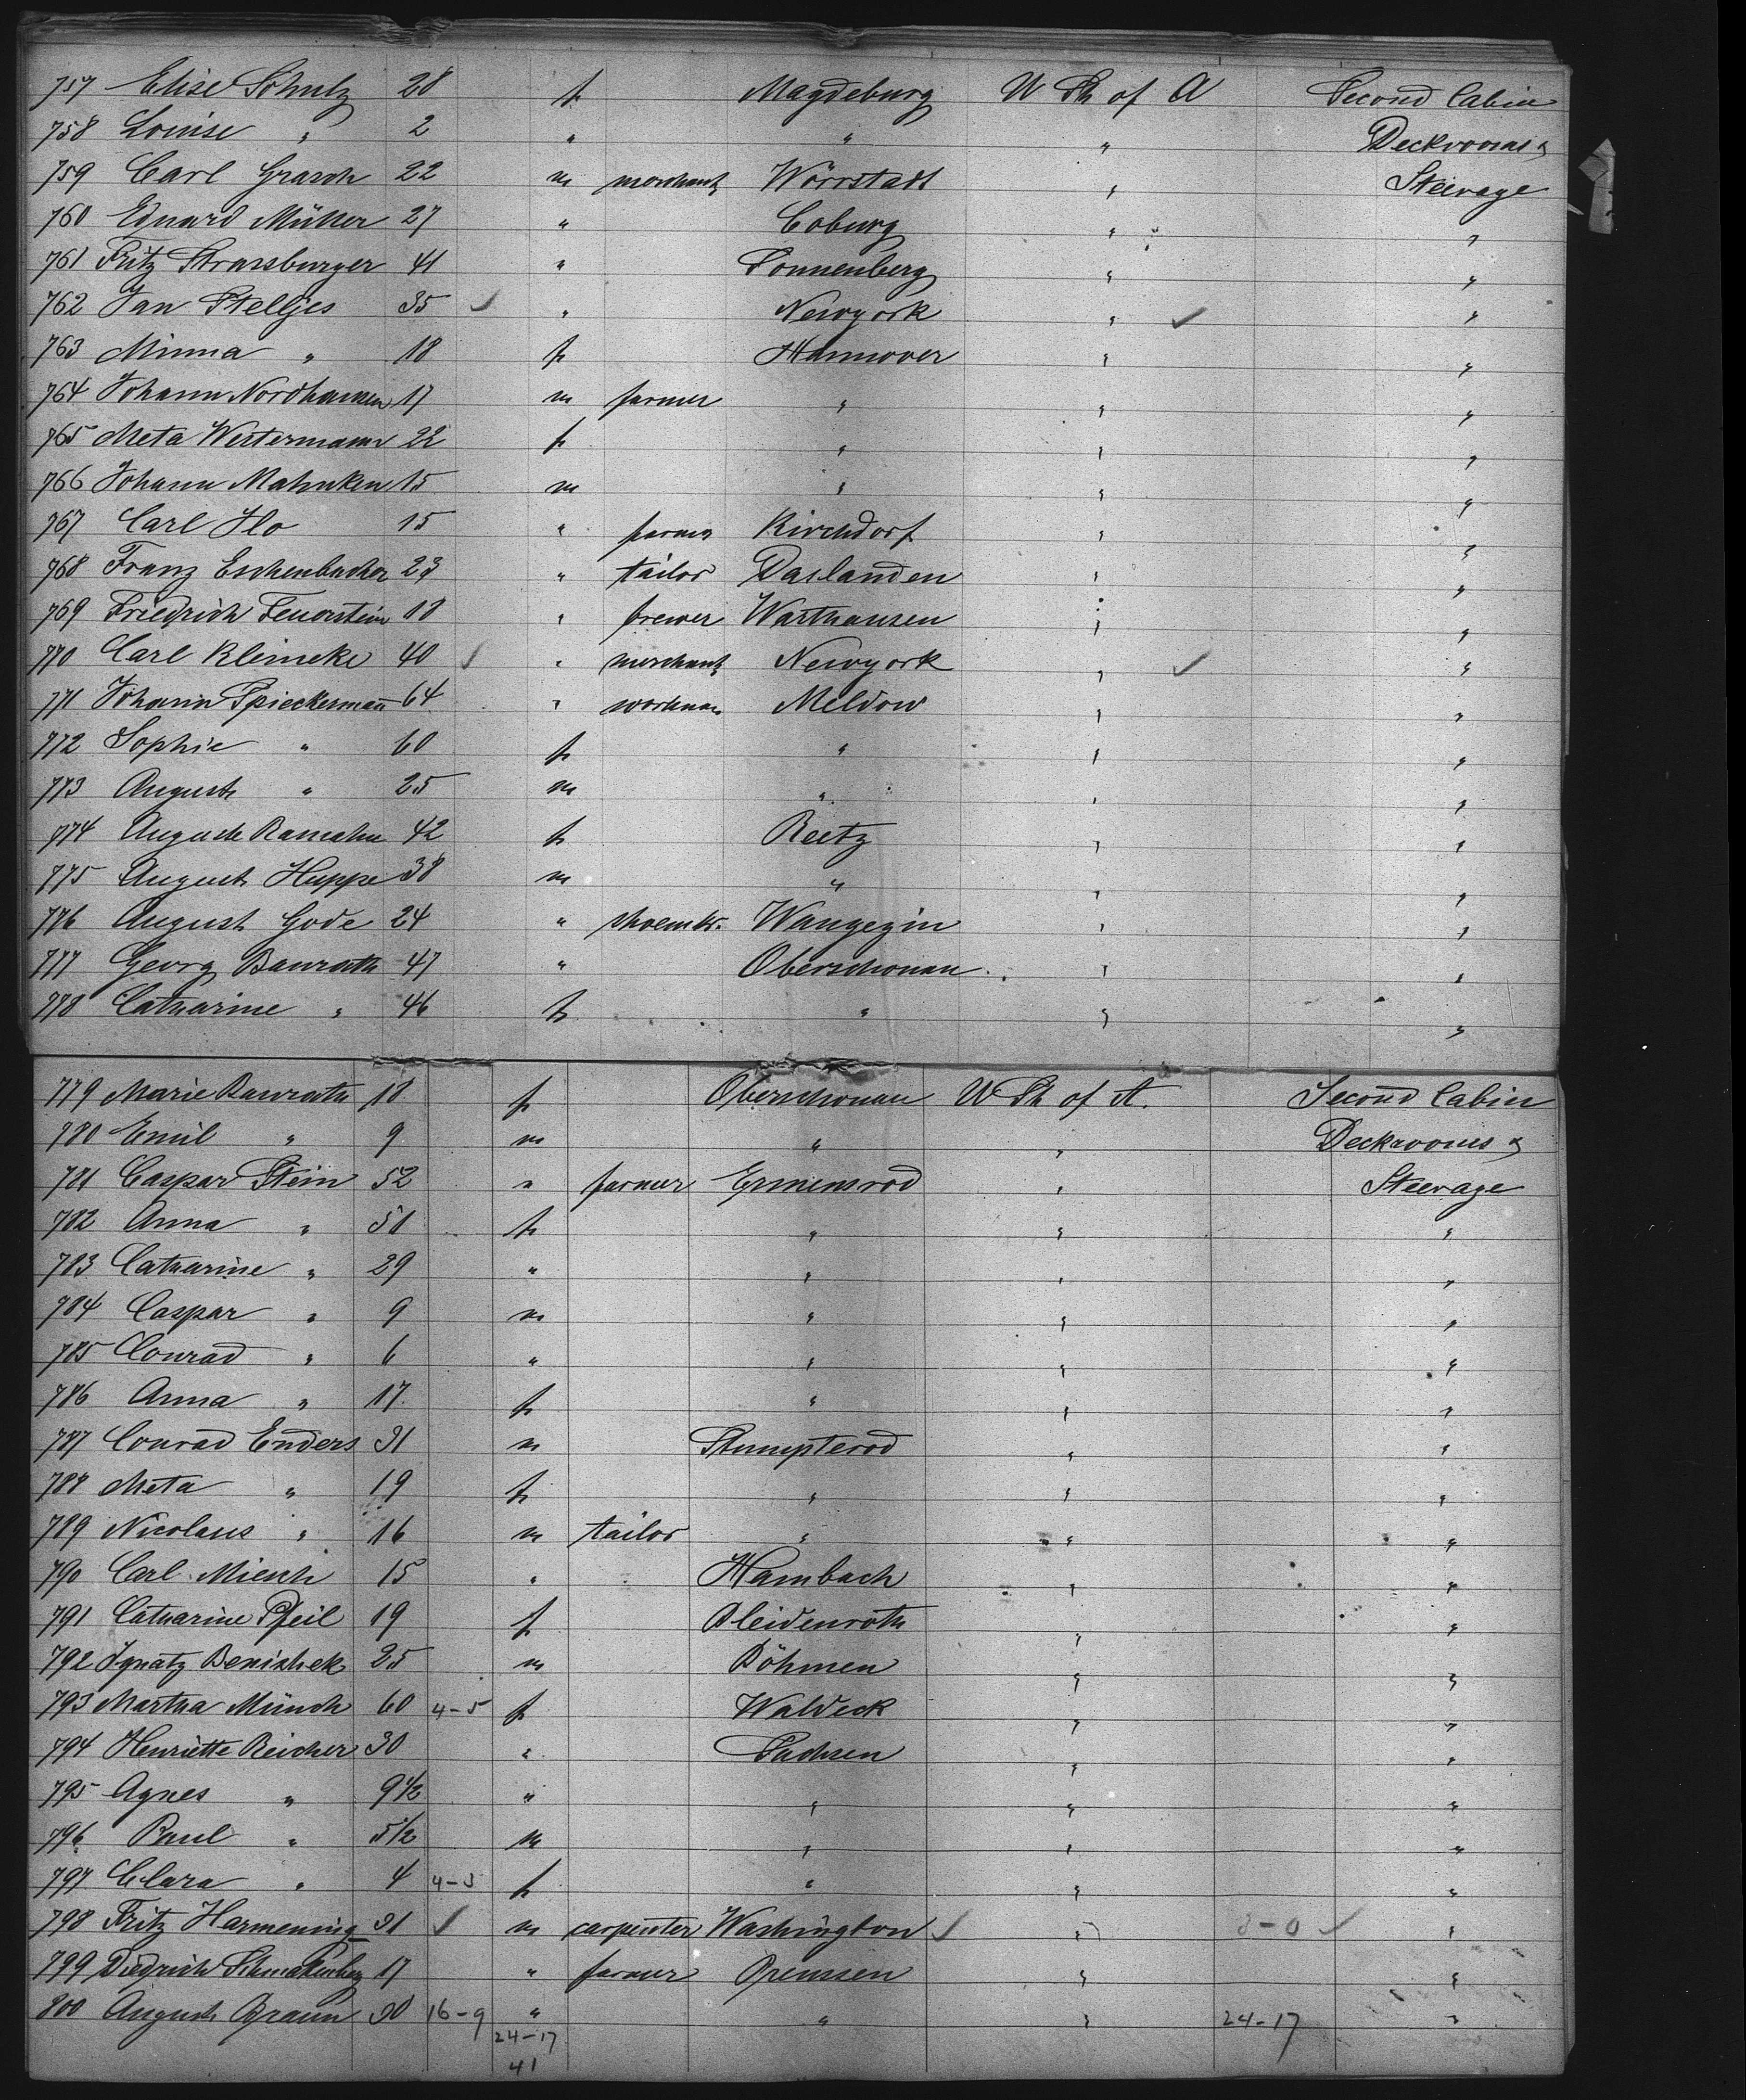 757 Elise Schulz 28 f. Magdeburg U St of A Second Cabin
758 Louise " 2 " " " Deckrooms &
759 Carl Grasch 22 m merchant Wörrstadt " Steerage
760 Eduard Müller 27 " Coburg " "
761 Fritz Strassburger 41 " Sonnenberg " "
762 Jan Stelljes 35 ✓ " Newyork " ✓ "
763 Minna " 18 f. Hannover " "
764 Johann Nordhausen 17 m farmer " " "
765 Meta Westermann 22 f. " " "
766 Johann Mahnken 15 m " " "
767 Carl Ilo 15 " farmer Kirchdorf " "
768 Franz Eschenbacher 23 " tailor Daslanden " "
769 Friedrich Feuerstein 18 " brewer Warthausen " "
770 Carl Kleineke 40 ✓ " merchant Newyork " ✓ "
771 Johann Spieckermann 64 " workman Meldow " "
772 Sophie " 60 f. " " "
773 August " 25 m " " "
774 Auguste Ramahn 42 f. Reetz " "
775 August Huppe 38 m " " "
776 August Gode 24 " shoemkr. Wangezin " "
777 Georg Baurath 47 " Oberschonau " "
778 Catharine " 46 f. " " "
779 Marie Baurath 18 f. Oberschonau U St of A. Second Cabin
780 Emil " 9 m " " Deckrooms &
781 Caspar Stein 52 " farmer Ermensrod " Steerage
782 Anna " 51 f. " " "
783 Catharine " 29 " " " "
784 Caspar " 9 m " " "
785 Conrad " 6 " " " "
786 Anna " 17 f. " " "
787 Conrad Enders 31 m Stumpterod " "
788 Meta " 19 f. " " "
789 Nicolaus " 16 m tailor " " "
790 Carl Miesch 15 " Hambach " "
791 Catharine Pfeil 19 f. Bleidenroth " "
792 Ignatz Benishek 25 m Böhmen " "
793 Martha Münch 60 4-5 f. Waldeck " "
794 Henriette Reicher 30 " Sachsen " "
795 Agnes " 9 1/2 " " " "
796 Paul " 5 1/2 m " " "
797 Clara " 4 4-3 f. " " "
798 Fritz Harmening 31 ✓ m carpenter Washington ✓ " 3-0 ✓ "
799 Diedrich Schmakenberg 17 " farmer Preussen " "
800 August Braun 30 16-9 " " " 24-17 "
24-17
41